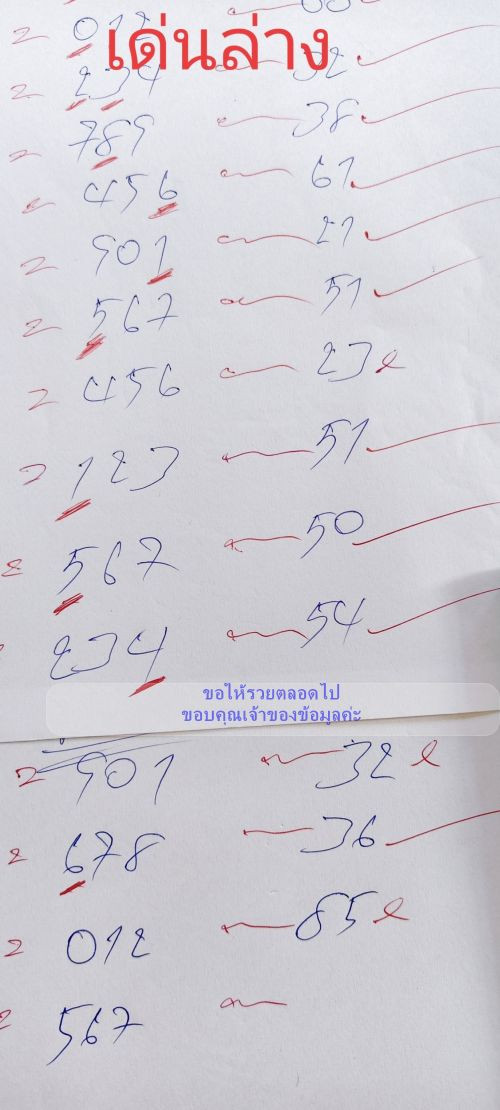 เด่นล่าง
2 234 32
2 789 38
2 456 61
2 901 21
2 567 51
2 456 23 x
2 123 51
2 567 50
234 54
ขอให้รวยตลอดไป
ขอบคุณเจ้าของข้อมูลค่ะ
2 901 32 x
2 678 36
2 012 85 x
2 567